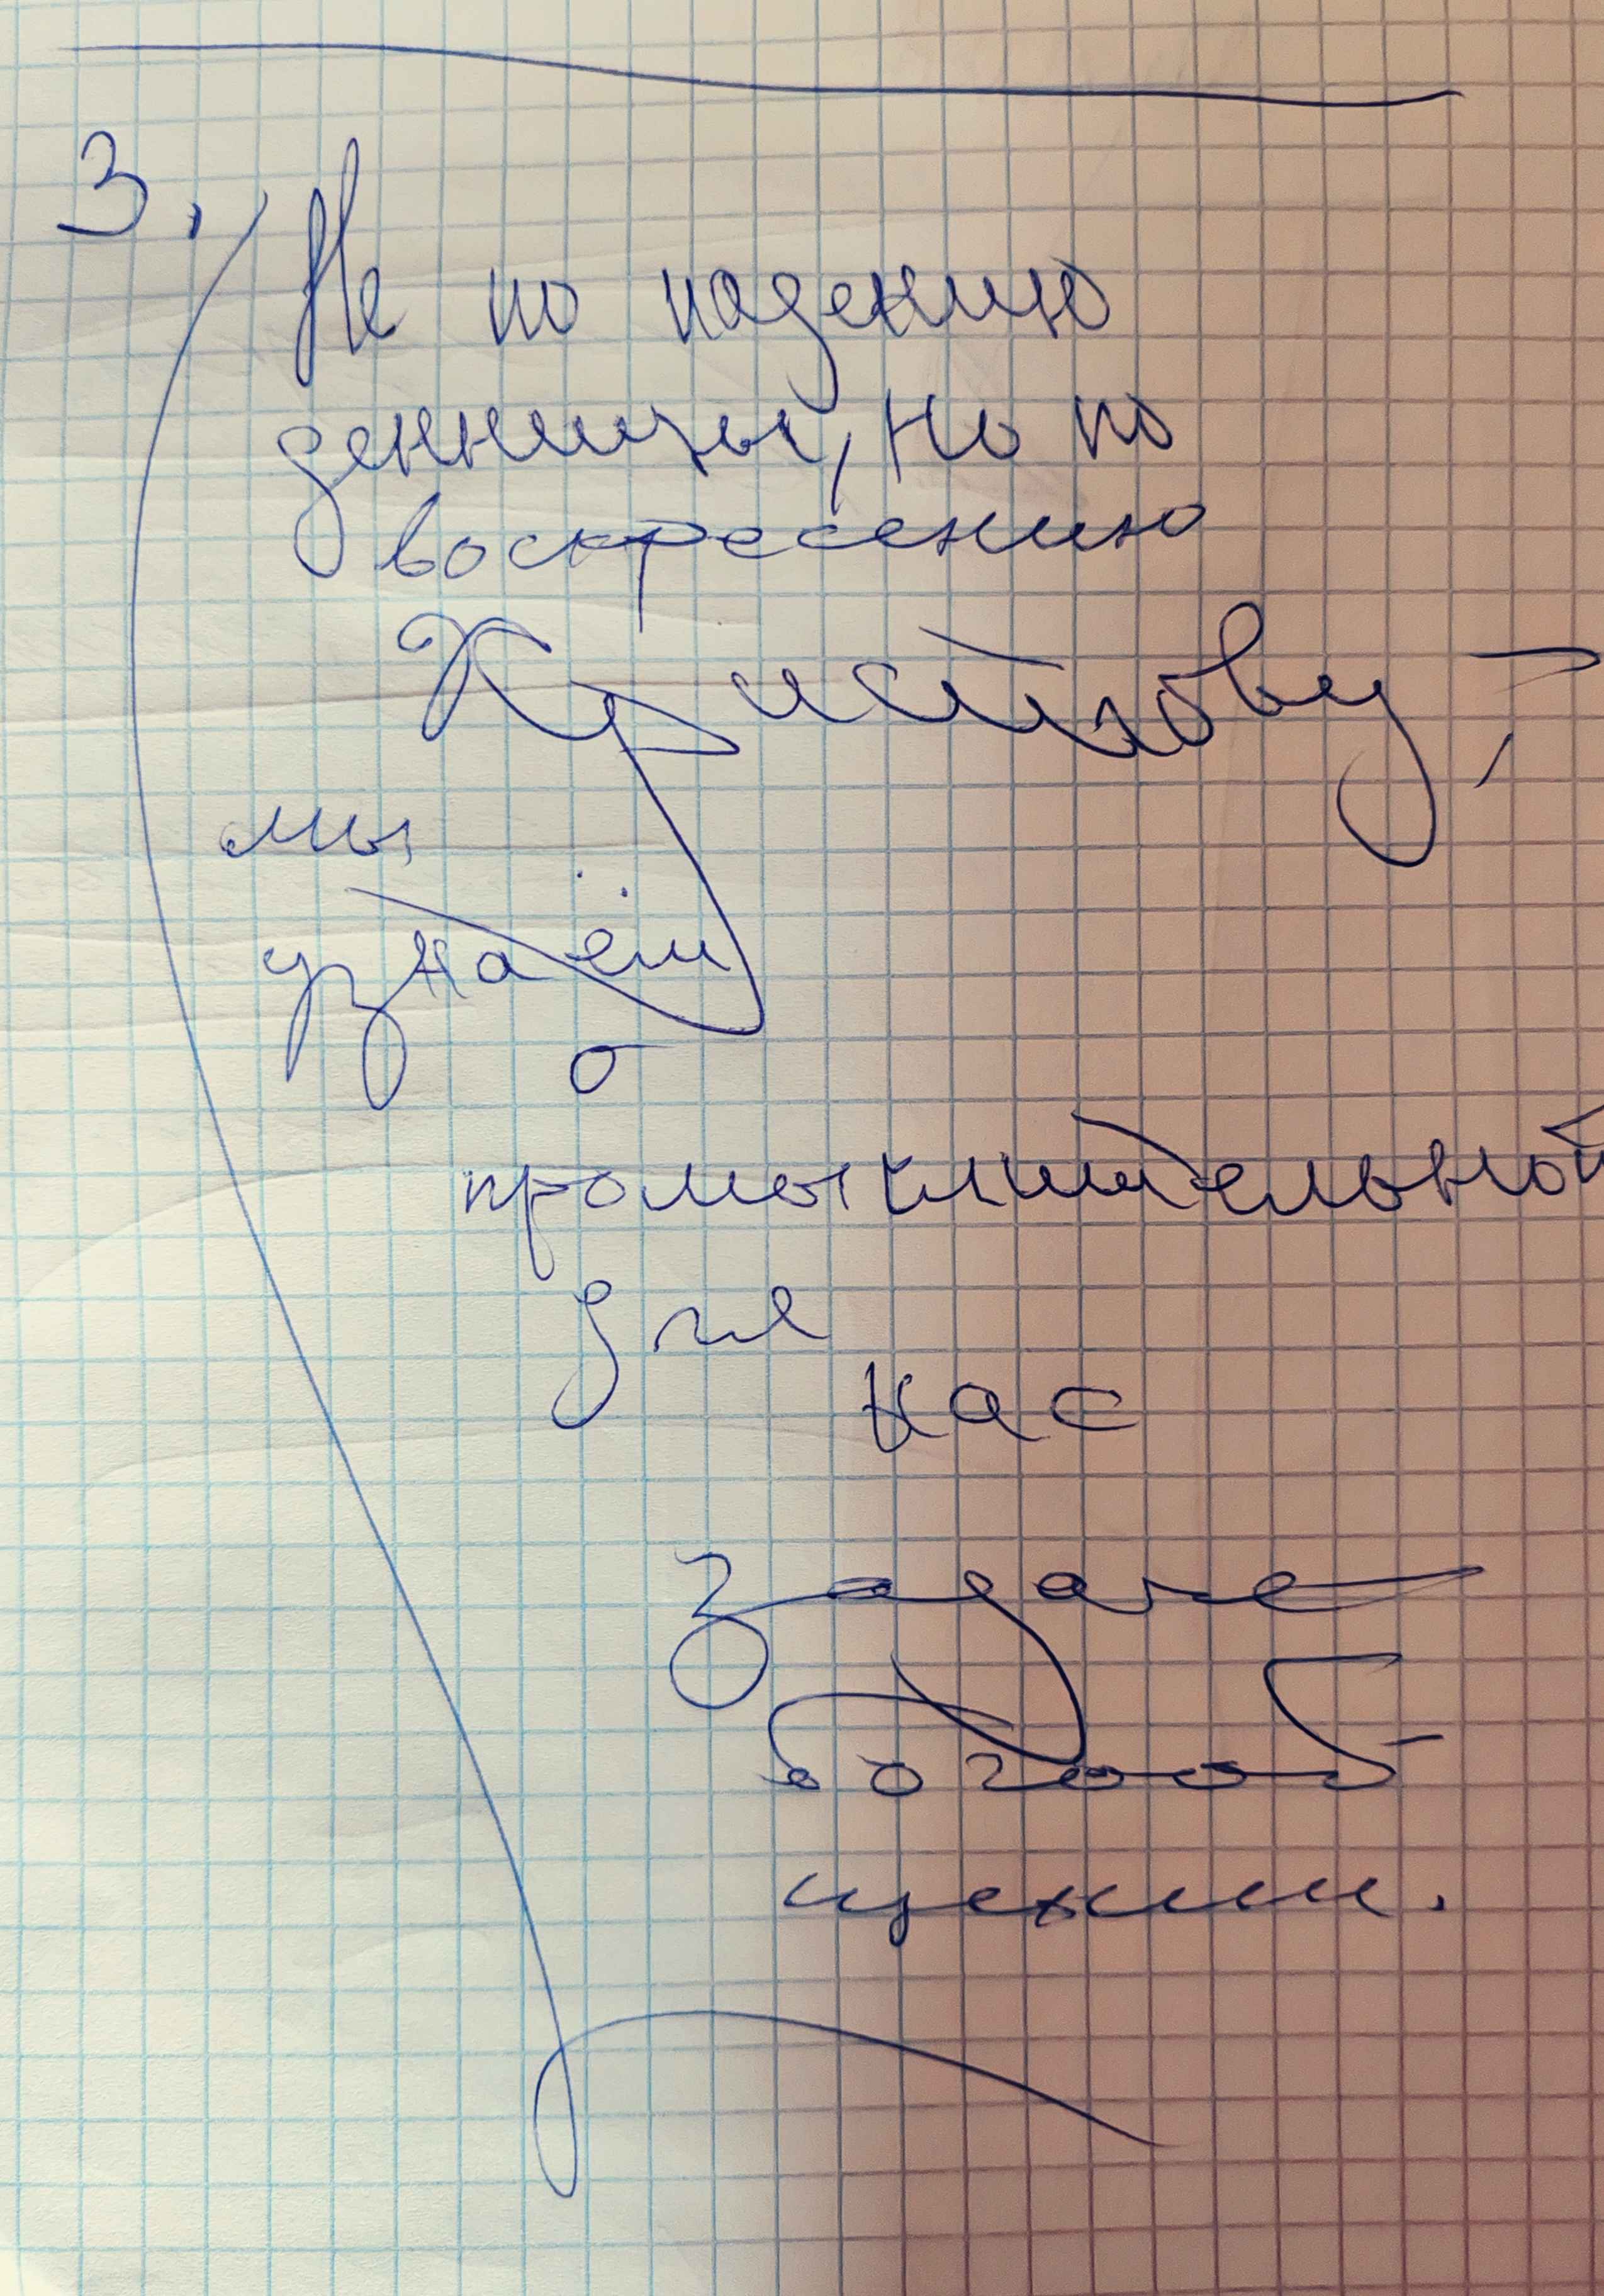 3. Не по падению
денницы, но по
воскресению
Христову,
мы
узнаём
о
промыслительной
для
нас
задаче
богооб-
щения.